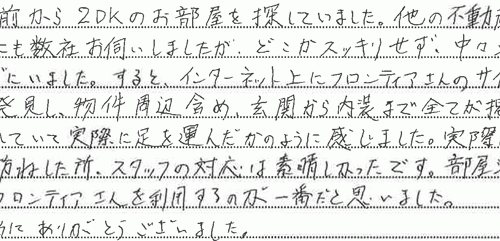 前から2DKのお部屋を探していました。他の不動
にも数社お伺いしましたが、どこかスッキリせず、中々
にいました。すると、インターネット上にフロンティアさんのサイ
発見し、物件周辺含め、玄関から内装まで全てが
れていて実際に足を運んだかのように感じました。実際
訪ねした所、スタッフの対応は素晴しかったです。部屋
フロンティアさんを利用するのが一番だと思いました。
にありがとうございました。